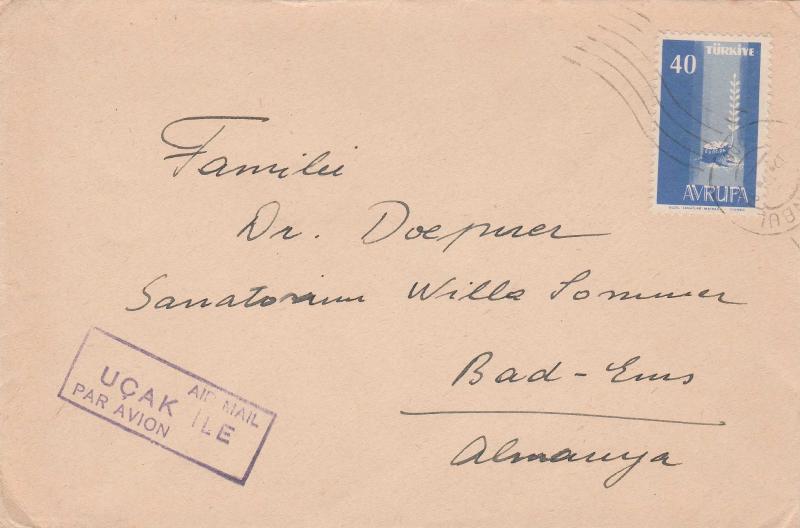 TÜRKİYE
40
AVRUPA
Familie
Dr. Doepner
Sanatorium Wille Sommer
Bad-Ems
Almanya
AIR MAIL
UÇAK İLE
PAR AVION